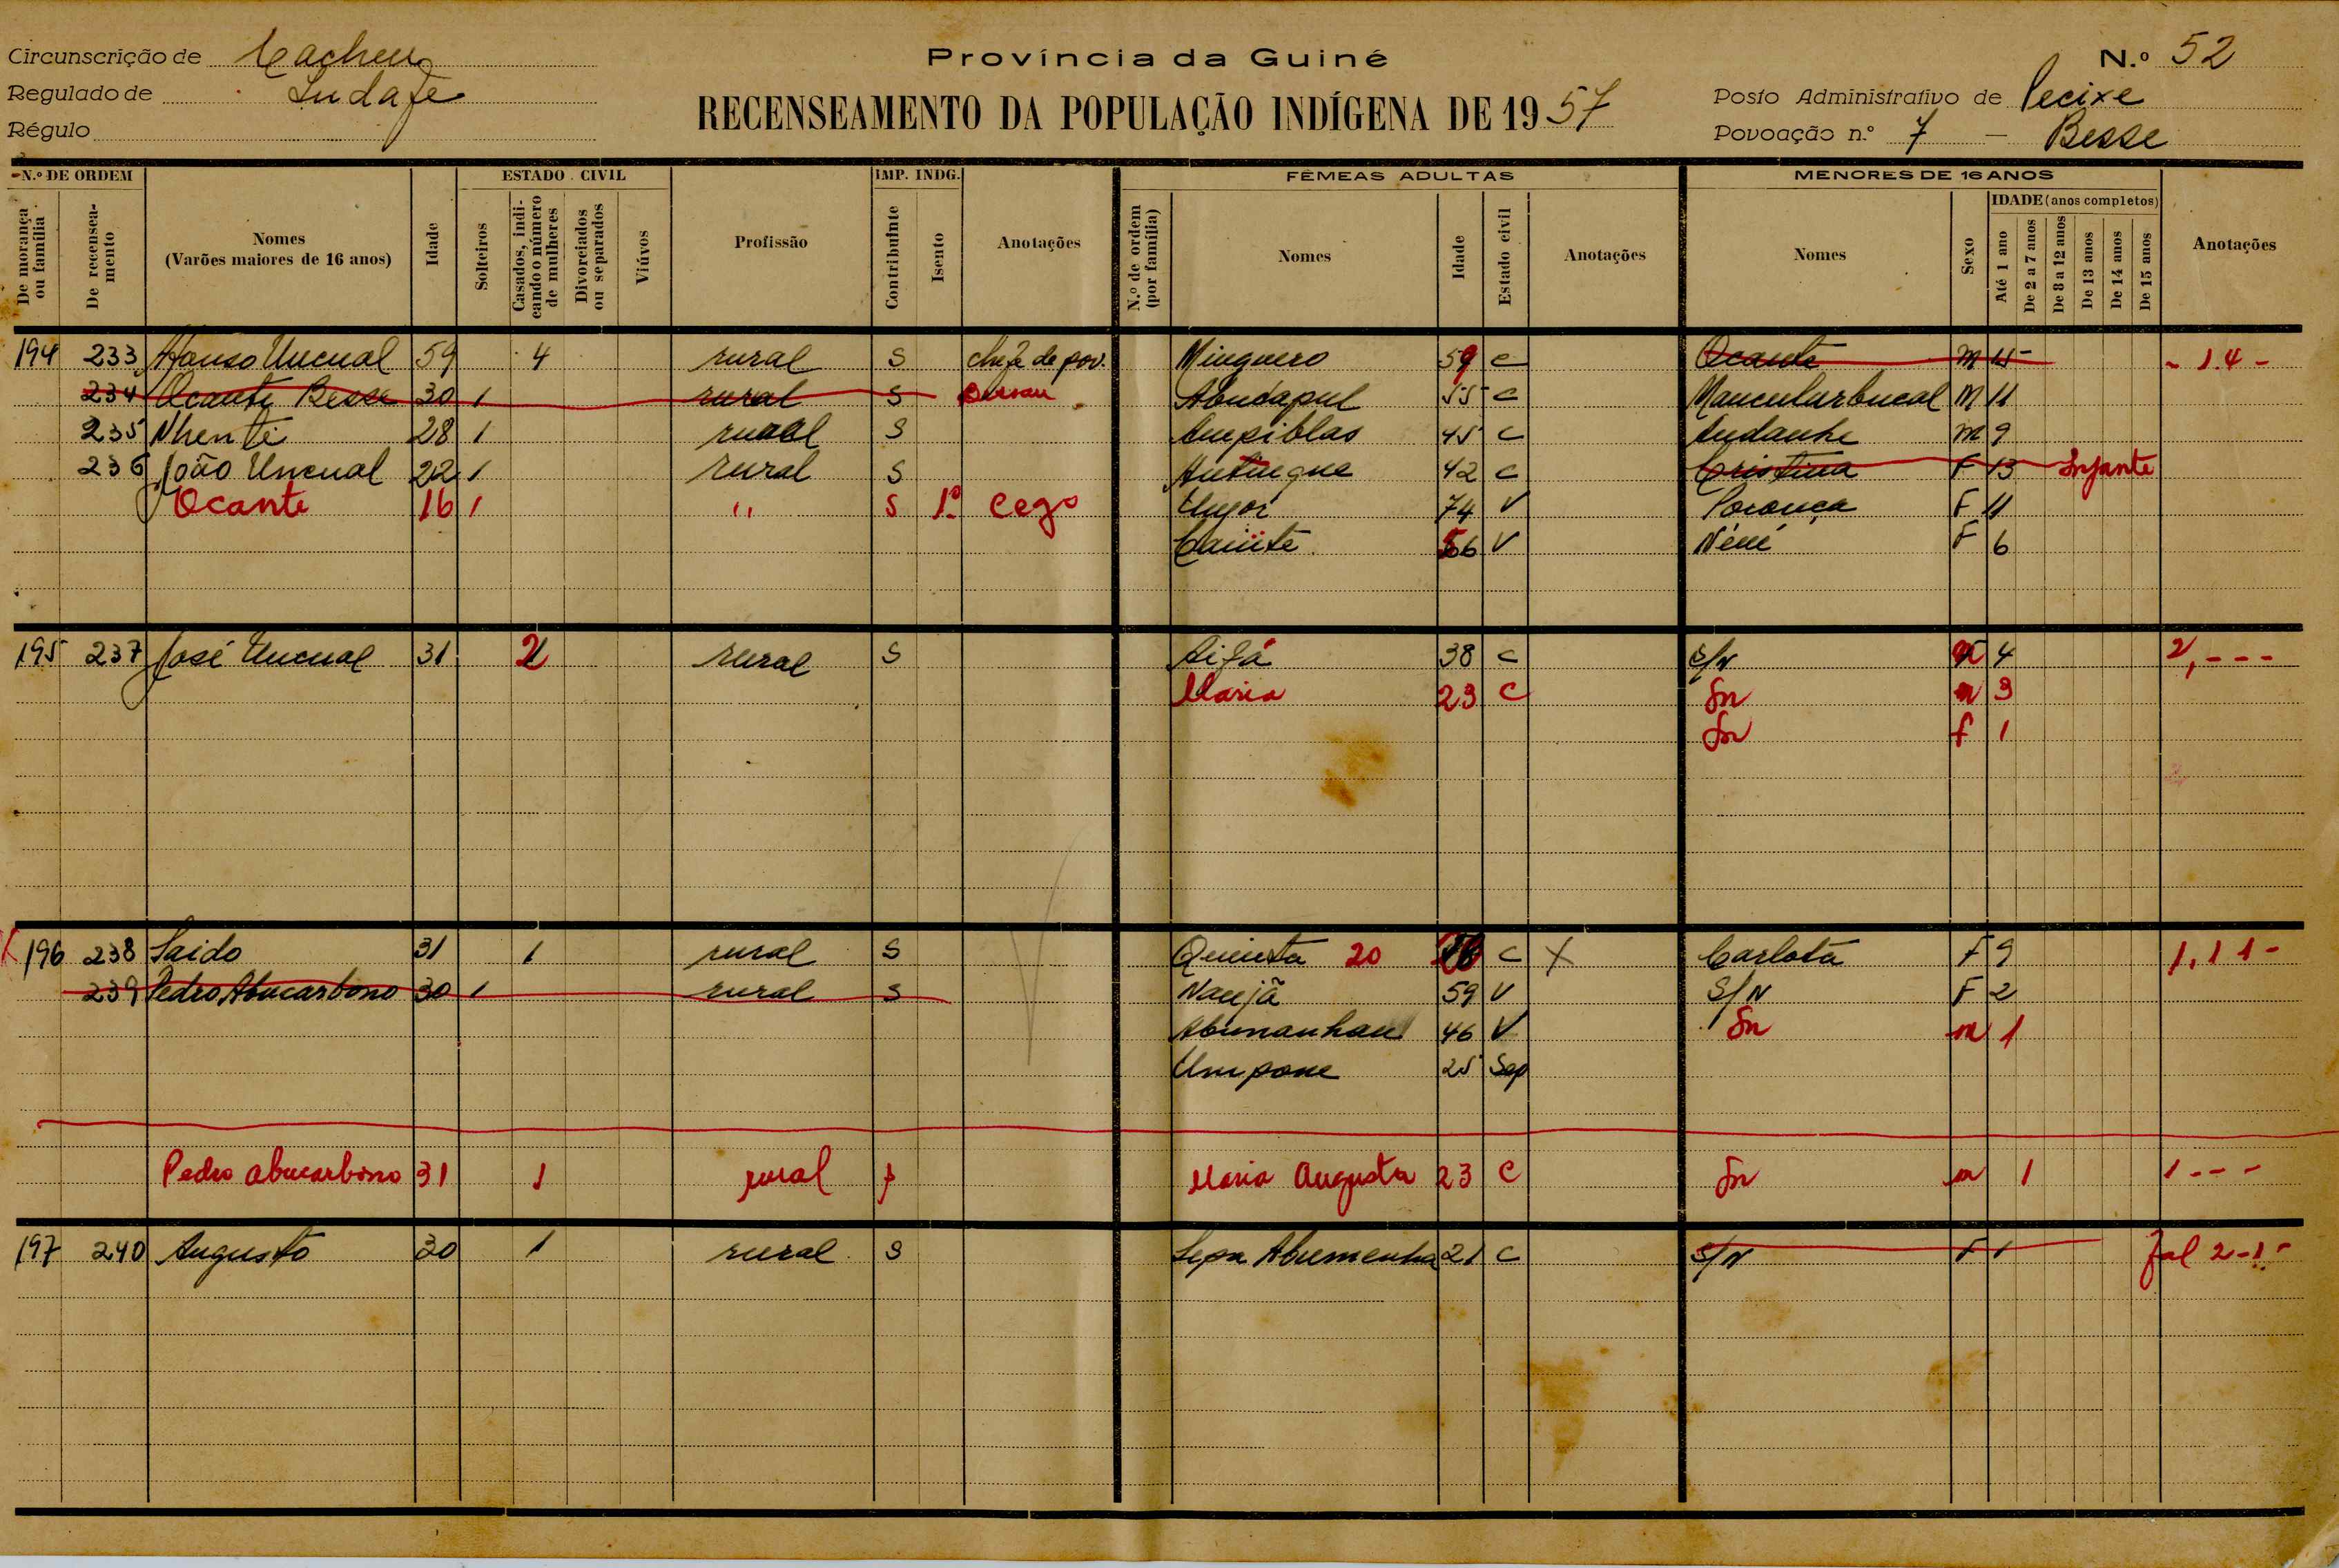 Província da Guiné
Circunscrição de Cacheu N.º 52
Regulado de
Régulo
RECENSEAMENTO DA POPULAÇÃO INDÍGENA DE 1957
Posto Administrativo de Pecixe
Povoação n.º 7 – Besse
N.º DE ORDEM
De morança ou família
De recenseamento
Nomes
(Varões maiores de 16 anos)
Idade
ESTADO CIVIL
Solteiros
Casados, indicando o número de mulheres
Divorciados ou separados
Viúvos
Profissão
IMP. INDG.
Contribuinte
Isento
Anotações
FÊMEAS ADULTAS
N.º de ordem (por família)
Nomes
Idade
Estado civil
Anotações
MENORES DE 16 ANOS
Nomes
Sexo
IDADE (anos completos)
Até 1 ano
De 2 a 7 anos
De 8 a 12 anos
De 13 anos
De 14 anos
De 15 anos
Anotações
194 233 Afonso Uncual 59 4 rural S chefe de pov. Minguero 59 C Ocante M 15 - 1.4 -
234 Ocante Besse 30 1 rural S Abudapul 55 C M 11
235 Nhente 28 1 rural S Ampiblas 45 C Andanhe M 9
236 João Uncual 22 1 rural S 42 C Cristina F 13 Infante
Ocante 16 1 " S 1º Cego 74 V F 11
66 V Néné F 6
195 237 José Uncual 31 2 rural S Aifá 38 C S/N 4 2, - - -
Maria 23 C Sn m 3
Sn f 1
196 238 Saido 31 1 rural S Quinta 20 C X Carlota F 9 1, 1 1 -
239 Pedro Abucarbono 30 1 rural S Naujã 59 V S/N F 2
Abumanhau 46 V Sn m 1
Umpone 25 Sep
Pedro abucarbono 31 1 rural Maria Augusta 23 C Sn m 1 1 - - -
197 240 Augusto 30 1 rural S 21 C S/N F 1 fal 2 - 1 -